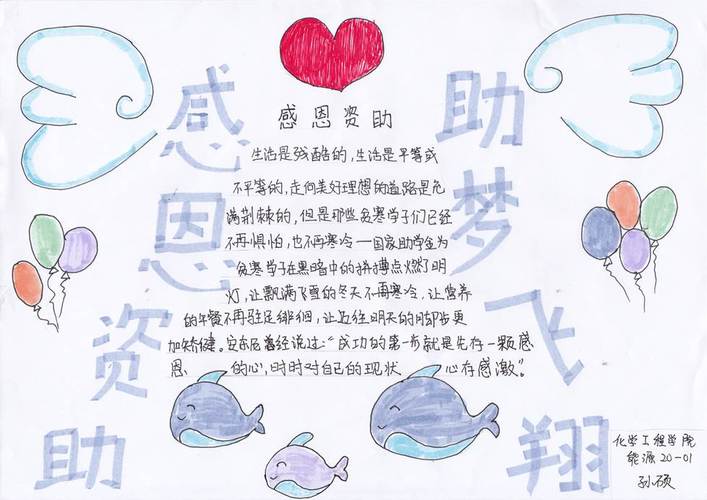 感恩资助
助梦飞翔
感恩资助
生活是残酷的,生活是平等或
不平等的,走向美好理想的道路是充
满荆棘的,但是那些贫寒学子们已经
不再惧怕,也不再寒冷—国家助学金为
贫寒学子在黑暗中的拼搏点燃了明
灯,让飘满飞雪的冬天不再寒冷,让营养
的午餐不再驻足徘徊,让迈往明天的脚步更
加矫健。安东尼曾经说过:“成功的第一步就是先存一颗感
恩 的心,时时对自己的现状 心存感激”。
化学工程学院
能源20-01
孙硕